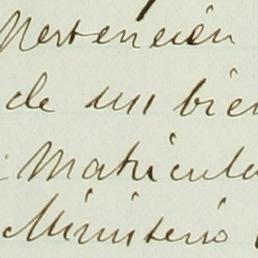 Pertención
de un bien
Matricula
Ministerio